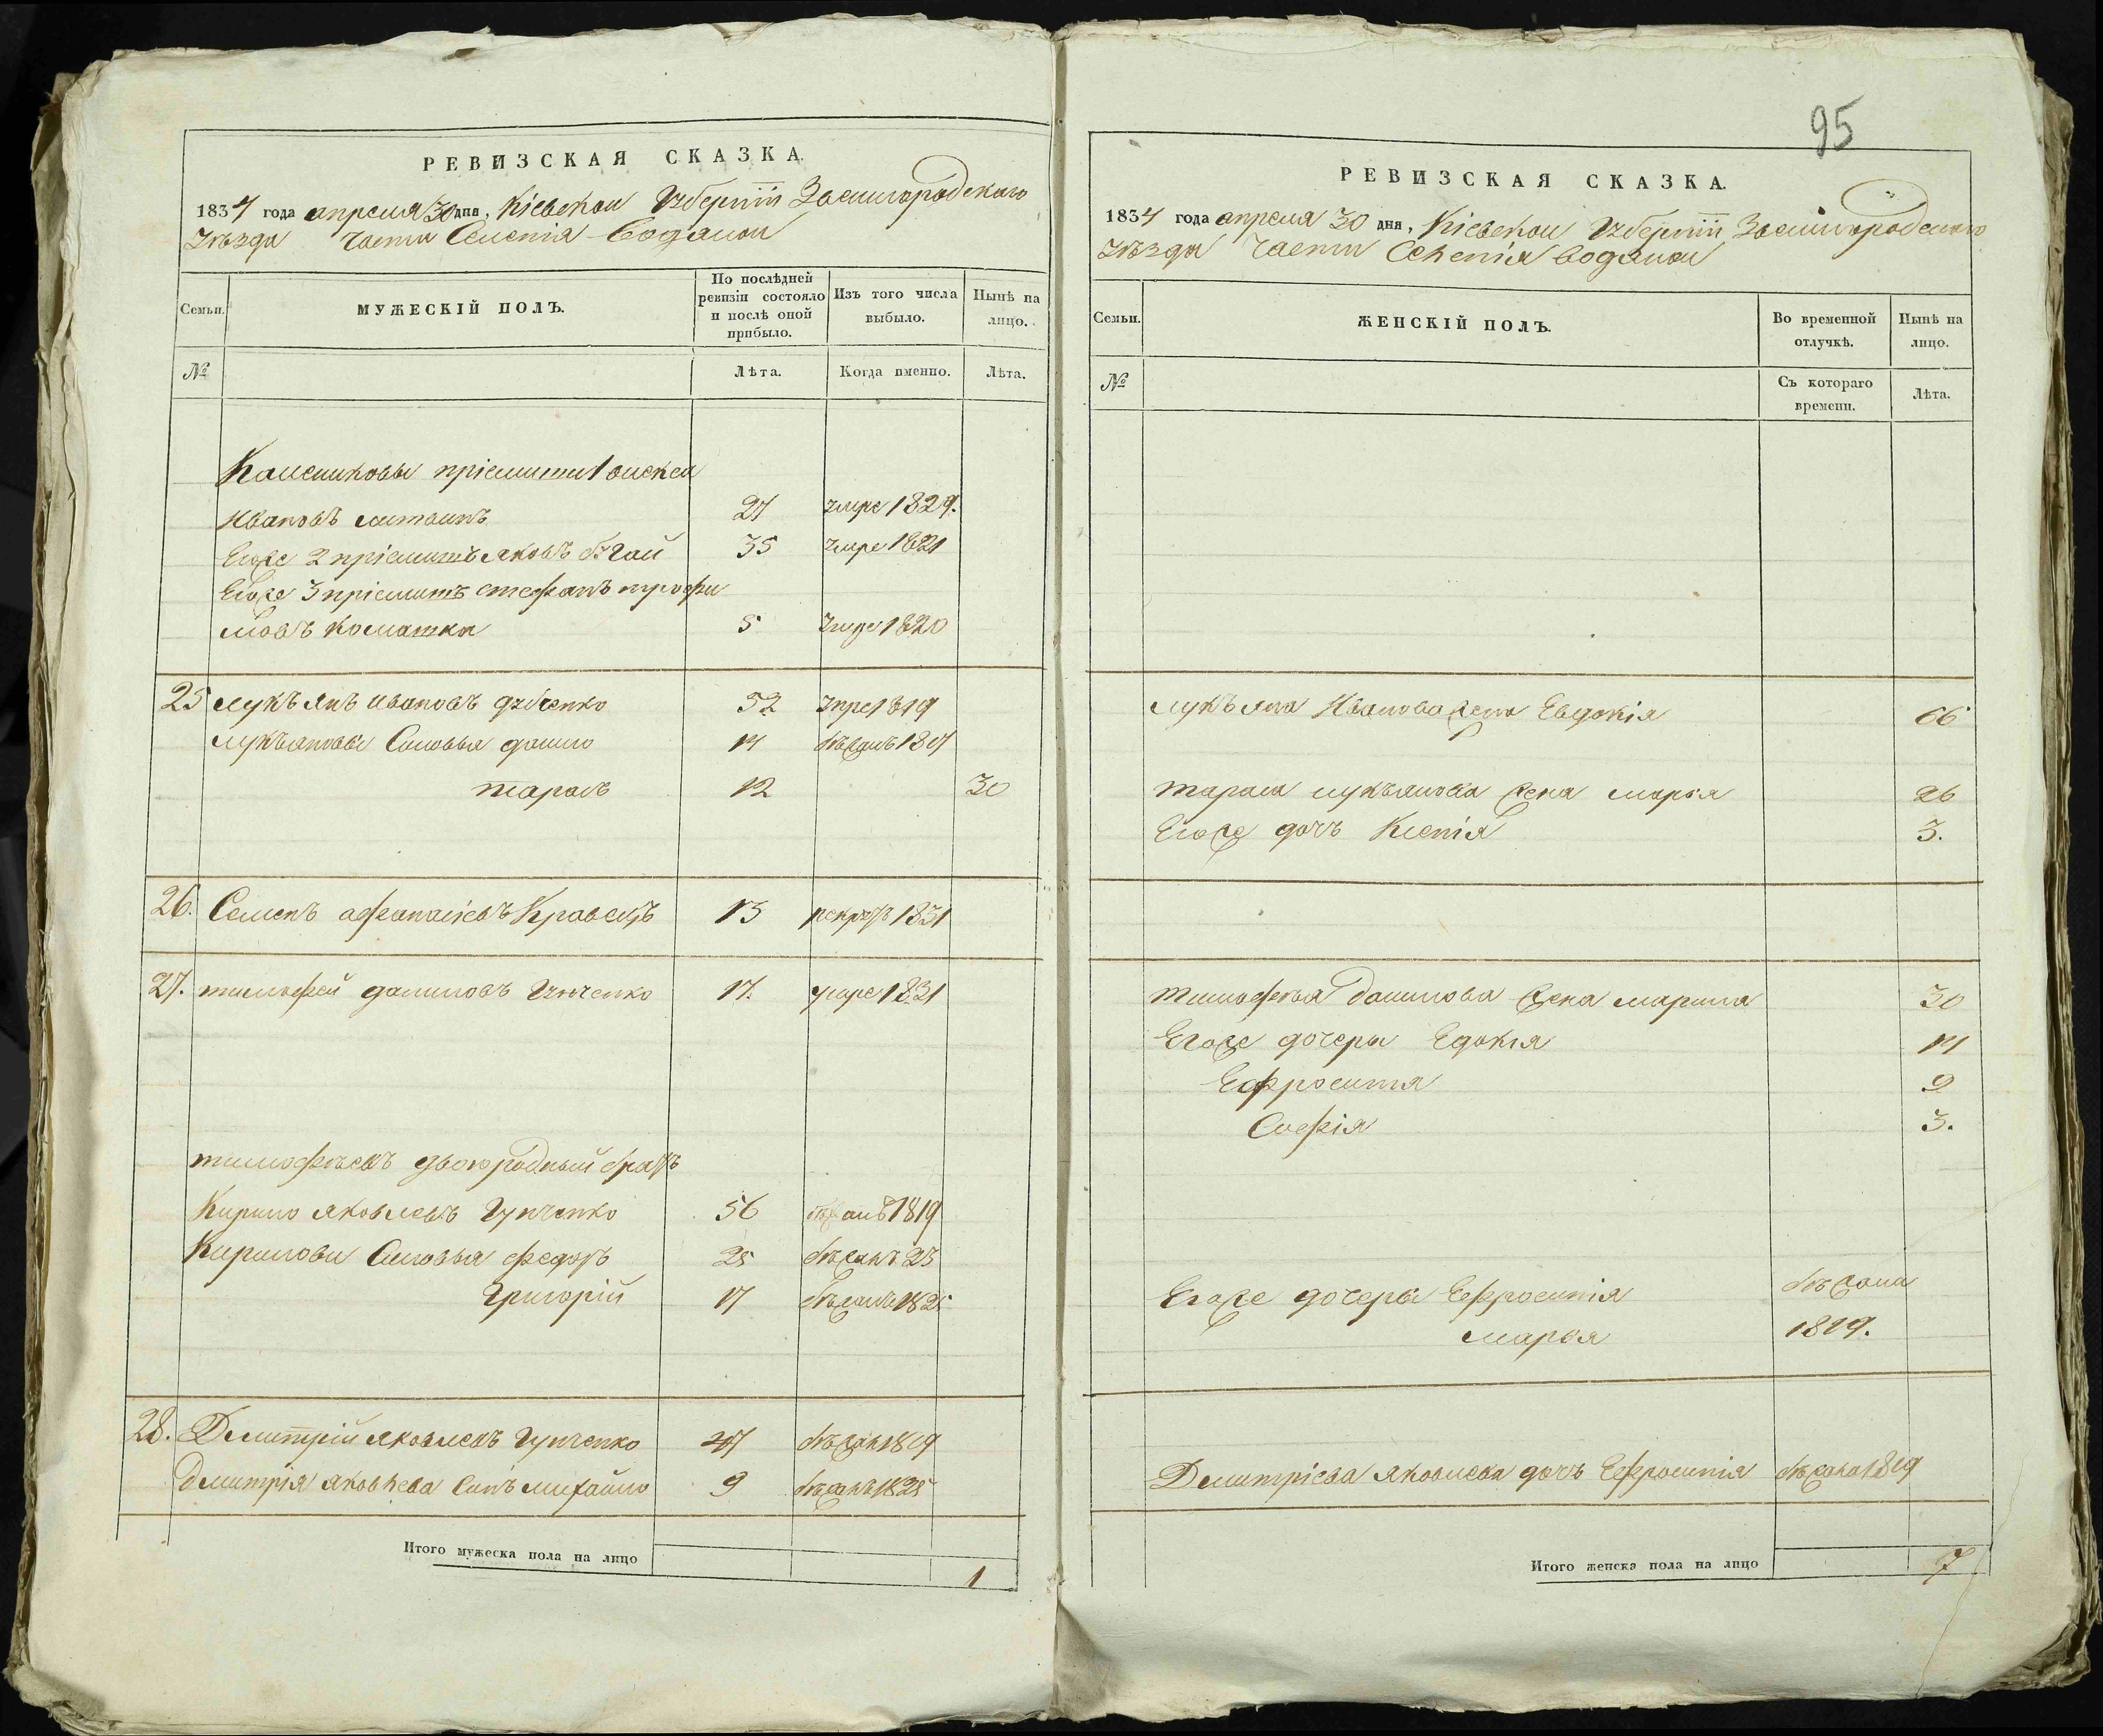 РЕВИЗСКАЯ СКАЗКА.
1834 года апреля 30 дня, Кіевской Губерніи Звенигородского
Уѣзда части Селенія Водяной
Семьи. МУЖЕСКІЙ ПОЛЪ. По послѣдней ревизіи состояло и послѣ оной прибыло. Изъ того числа выбыло. Нынѣ на лицо.
№ Лѣта. Когда именно. Лѣта.
приемыши 1
Ивановъ 27 умре 1829.
Егоже 2 приемышъ Яковъ 35 умре 1821
Егоже 3 приемышъ Стефанъ Трофи
мовъ 5 умре 1820
25 Лукъянъ Ивановъ 52 умре 1819
Лукъяновы Сыновья Данило 14 бѣжалъ
Тарасъ 12 30
26. Семенъ Афанасіевъ Кравецъ 13 рекрутъ 1831
27. Тимофей Даниловъ 17. умре 1831
Тимофѣевъ двоюродный братъ
Кирило Яковлевъ Гунченко 56 бѣжалъ 1819
Кирилови Сыновья Федоръ 25 бѣжалъ 23
Григорій 17 бѣжалъ 1825
28. Дмитрій Яковлевъ Гунченко бѣжалъ 1819
Дмитрія Яковлева Сынъ Михайло 9 бѣжалъ 1825
Итого мужеска пола на лицо 1
95
РЕВИЗСКАЯ СКАЗКА.
1834 года апреля 30 дня, Кіевской Губерніи Звенигородского
Уѣзда части Селенія Водяной
Семьи. ЖЕНСКІЙ ПОЛЪ. Во временной отлучкѣ. Нынѣ на лицо.
№ Съ котораго времени. Лѣта.
Лукъяна Иванова жена Евдокія 66
Тараса Лукъянова жена Марья 26
Егоже дочь Ксенія 3.
Тимофея Данилова жена Марина 30
Егоже дочери Едокія 14
Ефросинія 9
Софія 3.
Егоже дочери Ефросинія бѣжали
Марья 1819.
Дмитріева Яковлева дочь Ефросинія бѣжала 1819
Итого женска пола на лицо 7